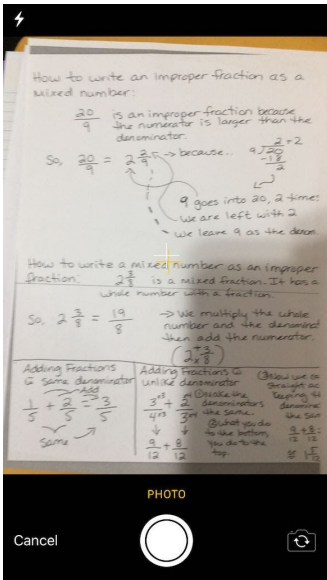 How to write an improper fraction as a
mixed number:
20/9 is an improper fraction because
the numerator is larger than the
denominator.
So, 20/9 = 2 2/9 → because..
2 = 2
9)20
-18
2
9 goes into 20, 2 time
we are left with 2
we leave 9 as the denom
How to write a mixed number as an improper
fraction: 2 3/8 is a mixed fraction. It has a
whole number with a fraction.
So, 2 3/8 = 19/8 → We multiply the whole
number and the denominat
then add the numerator.
2 +3/×8
Adding Fractions
same denominator
Add
1/5 + 2/5 = 3/5
Same
Adding Fractions
unlike denominator
3 ×3/4 ×3 +
① Make the
denominators
the same.
② What you do
to the bottom,
you do to the
top.
9/12 + 8/12
③ Now we
straight
keeping
denomin
the sam
9/12 + 8/12
PHOTO
Cancel